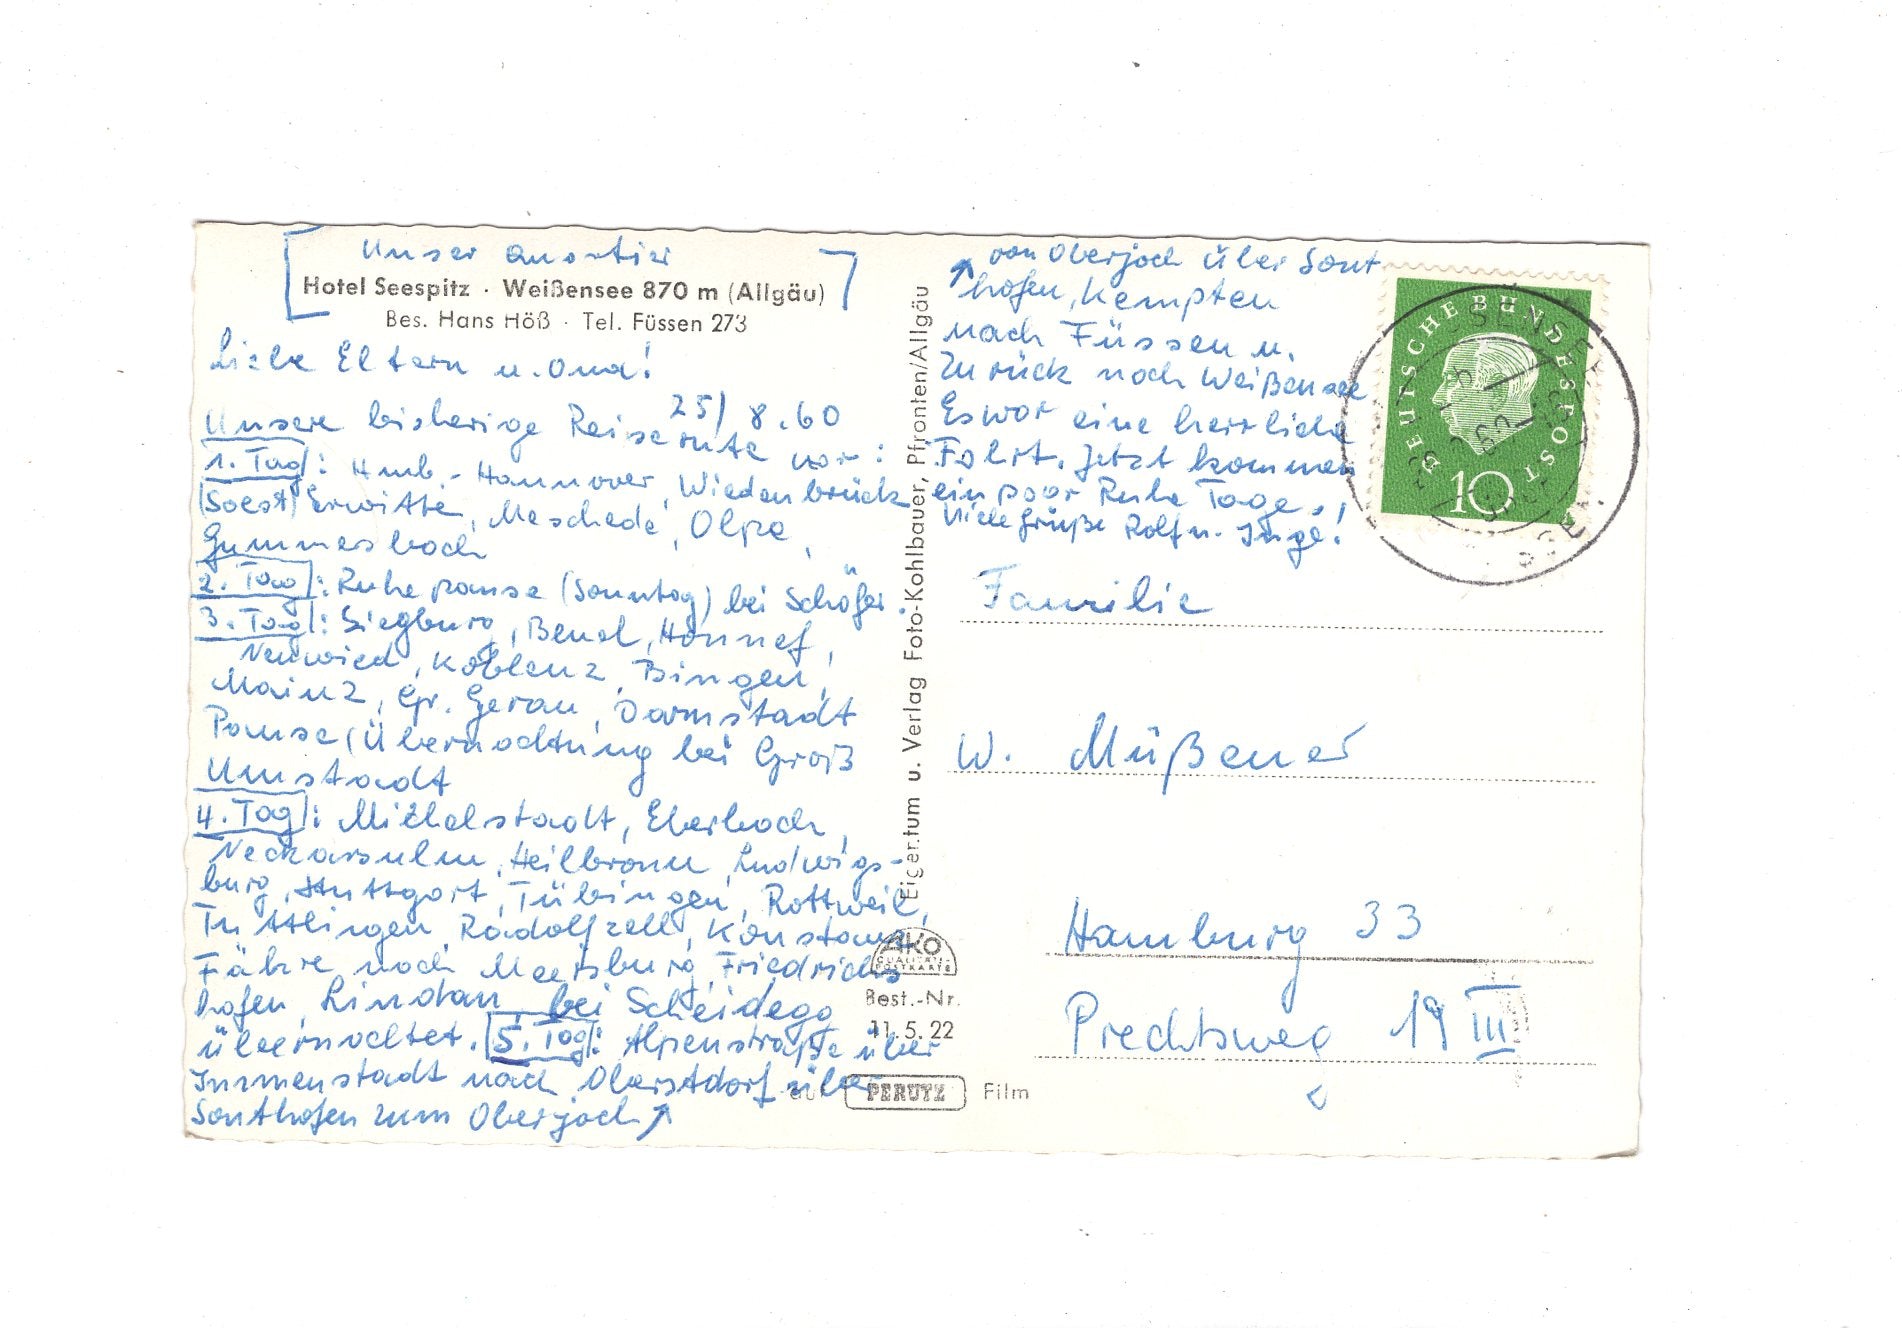 Unser Quartier
Hotel Seespitz · Weißensee 870 m (Allgäu)
Bes. Hans Höß · Tel. Füssen 273
Liebe Eltern u. Oma!
25/8.60
Unsere bisherige Reiseroute war:
1. Tag: Hmb.-Hannover, Wiedenbrück
(Soest) Erwitte, Meschede, Olpe,
Gummersbach
2. Tag: Ruhepause (Sonntag) bei Schäfer.
3. Tag: Siegburg, Beuel, Honnef,
Neuwied, Koblenz, Bingen,
Mainz, Gr. Gerau, Darmstadt
Pause (Übernachtung bei Groß
Umstadt
4. Tag: Michelstadt, Eberbach,
Neckarsulm, Heilbronn, Ludwigs-
burg, Stuttgart, Tübingen, Rottweil,
Tuttlingen, Radolfzell, Konstanz
Fähre nach Meersburg, Friedrichs
hafen, Lindau, bei Scheidegg
übernachtet. 5. Tag: Alpenstraße über
Immenstadt nach Oberstdorf über
Sonthofen zum Oberjoch ↗
↗ von Oberjoch über Sont
hofen, Kempten
nach Füssen u.
Zurück nach Weißensee
Es war eine herrliche
Fahrt. Jetzt kommen
ein paar Ruhe Tage.
Viele Grüße Rolf u. Inge!
Eigentum u. Verlag Foto-Kohlbauer, Pfronten/Allgäu
AKO
QUALITÄTS-
POSTKARTE
Best.-Nr.
11.5.22
auf PERUTZ Film
DEUTSCHE BUNDESPOST
10
Familie
W. Müßener
Hamburg 33
Prechtsweg 19 III